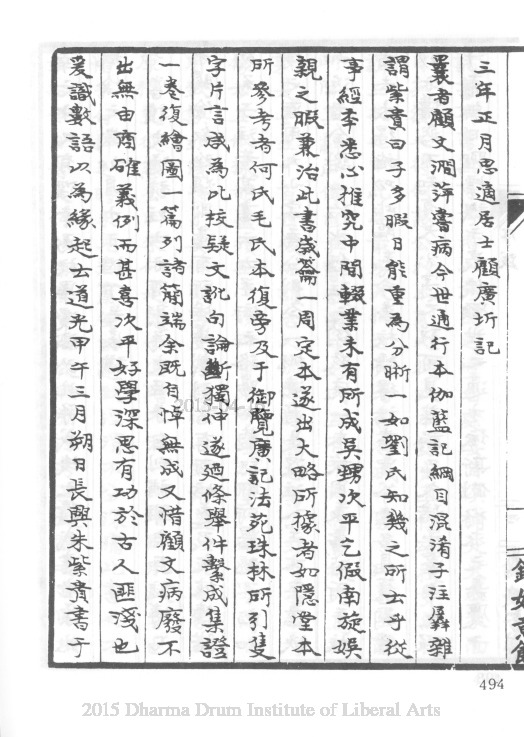 三年正月思適居士顧廣圻記
曩者顧文澗薲嘗病今世通行本伽藍記綱目混淆子注羼雜
謂紫貴曰子多暇日能重為分晰一如劉氏知幾之所云乎從
事經季悉心推究中間輟業未有所成吳甥次平乞假南旋娛
親之暇兼治此書歲籥一周定本遂出大略所據者如隱堂本
所參考者何氏毛氏本復旁及于御覽廣記法苑珠林所引隻
字片言咸為比校疑文訛句論斷獨伸遂廼條舉件繫成集證
一卷復繪圖一篇列諸簡端余既自悼無成又惜顧文病廢不
出無由商確義例而甚喜次平好學深思有功於古人匪淺也
爰識數語以為緣起云道光甲午三月朔日長興朱紫貴書于
494
2015 Dharma Drum Institute of Liberal Arts